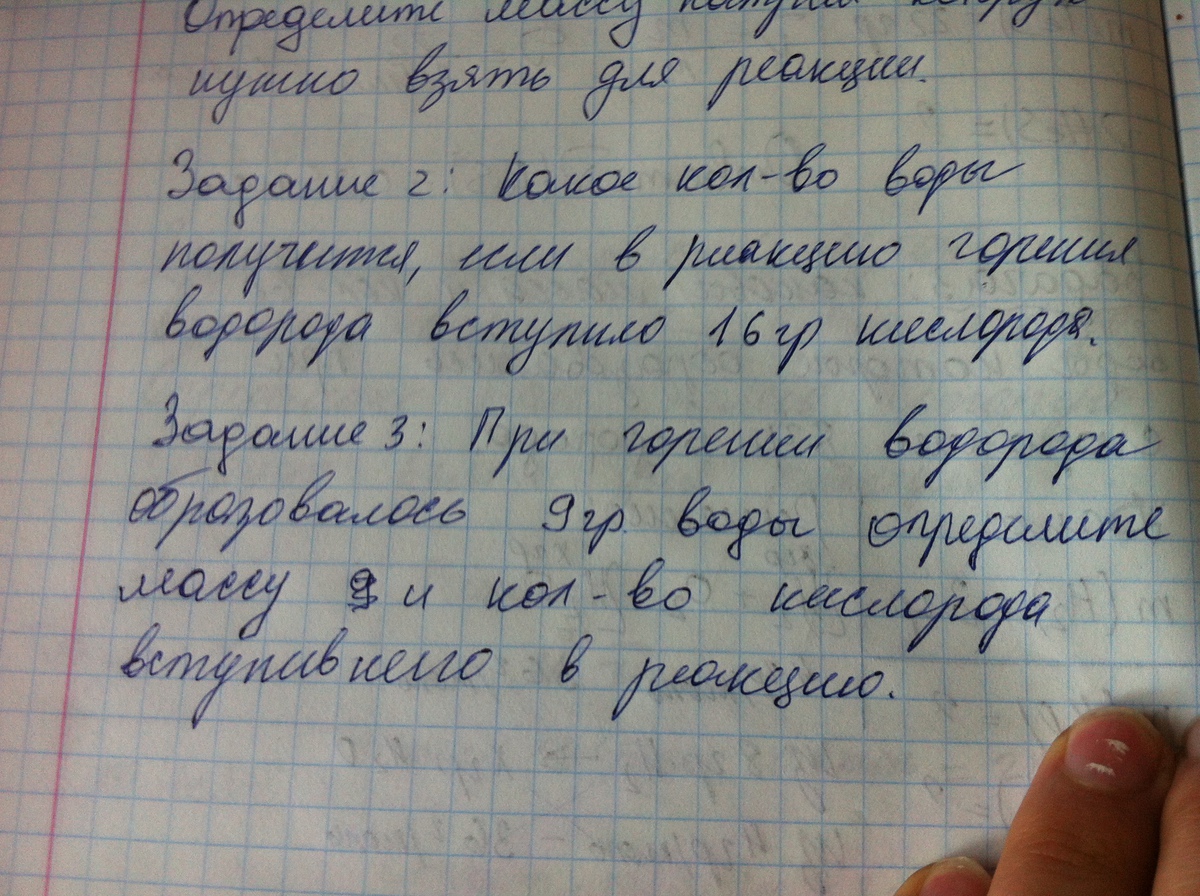 Определите массу которую
нужно взять для реакции.
Задание 2: Какое кол-во воды
получится, если в реакцию горения
водорода вступило 16 гр кислорода.
Задание 3: При горении водорода
образовалось 9 гр. воды определите
массу и кол-во кислорода
вступившего в реакцию.